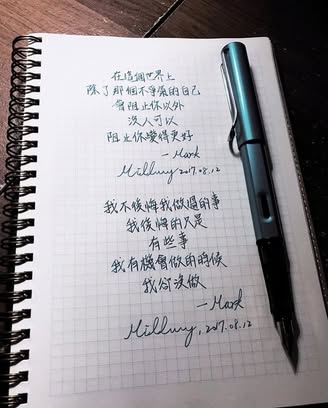 在這個世界上
除了那個不爭氣的自己
會阻止你以外
沒人可以
阻止你變得更好
— Mark
Millury 2017.08.12
我不後悔我做過的事
我後悔的只是
有些事
我有機會做的時候
我卻沒做
— Mark
Millury, 2017.08.12